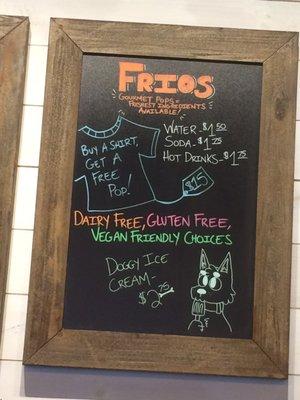 FRIOS
GOURMET POPS =
FRESHEST INGREDIENTS
AVAILABLE!
BUY A SHIRT,
GET A
FREE
POP!
$15
WATER - $1.50
SODA - $1.75
HOT DRINKS - $1.75
DAIRY FREE, GLUTEN FREE,
VEGAN FRIENDLY CHOICES
DOGGY ICE
CREAM -
$2.75